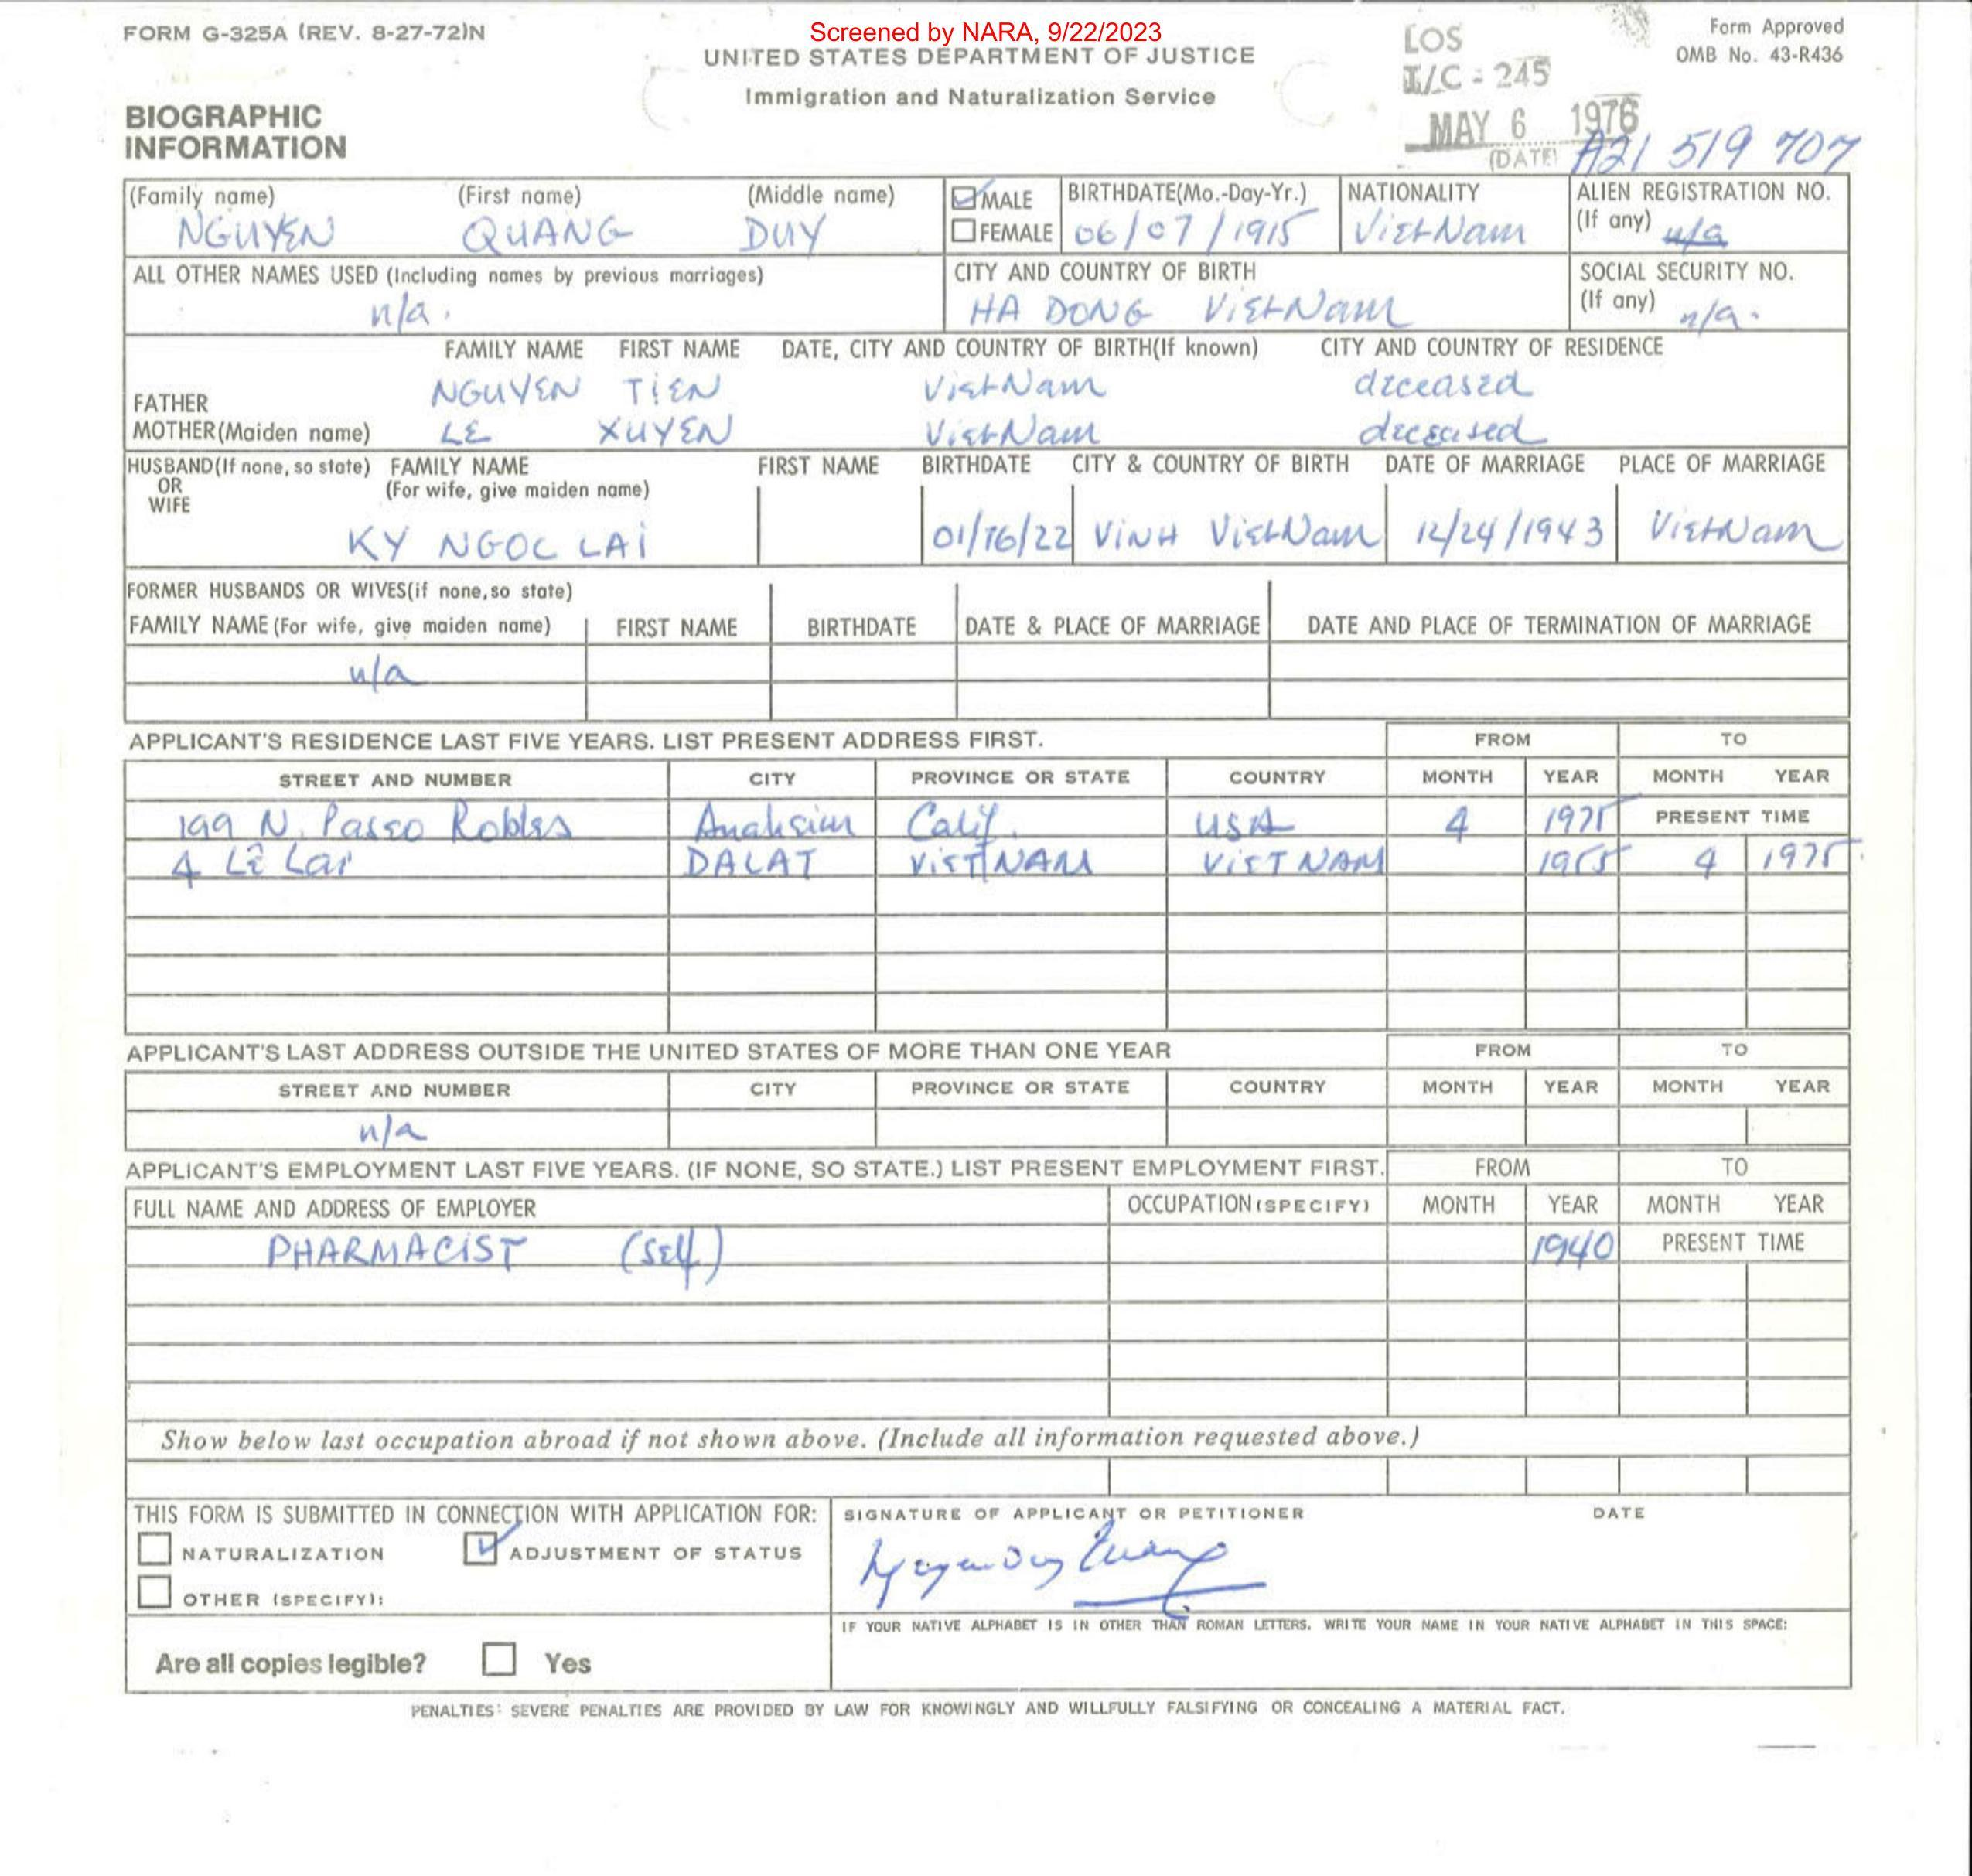 FORM G-325A (REV. 8-27-72)N
Screened by NARA, 9/22/2023
UNITED STATES DEPARTMENT OF JUSTICE
Immigration and Naturalization Service
LOS
I/C - 245
MAY 6 1976
(DATE)
Form Approved
OMB No. 43-R436
A21 519 707
BIOGRAPHIC
INFORMATION
(Family name) (First name) (Middle name) MALE BIRTHDATE(Mo.-Day-Yr.) NATIONALITY ALIEN REGISTRATION NO.
(If any) n/a
NGUYEN QUANG DUY FEMALE 06/07/1915 VietNam
ALL OTHER NAMES USED (Including names by previous marriages) CITY AND COUNTRY OF BIRTH SOCIAL SECURITY NO.
(If any) n/a.
n/a. HA DONG VietNam
FAMILY NAME FIRST NAME DATE, CITY AND COUNTRY OF BIRTH(If known) CITY AND COUNTRY OF RESIDENCE
FATHER NGUYEN TIEN VietNam deceased
MOTHER(Maiden name) LE XUYEN VietNam deceased
HUSBAND(If none, so state) FAMILY NAME FIRST NAME BIRTHDATE CITY & COUNTRY OF BIRTH DATE OF MARRIAGE PLACE OF MARRIAGE
OR (For wife, give maiden name)
WIFE
KY NGOC LAI 01/16/22 VINH VietNam 12/24/1943 VietNam
FORMER HUSBANDS OR WIVES(if none,so state)
FAMILY NAME (For wife, give maiden name) FIRST NAME BIRTHDATE DATE & PLACE OF MARRIAGE DATE AND PLACE OF TERMINATION OF MARRIAGE
n/a
APPLICANT'S RESIDENCE LAST FIVE YEARS. LIST PRESENT ADDRESS FIRST. FROM TO
STREET AND NUMBER CITY PROVINCE OR STATE COUNTRY MONTH YEAR MONTH YEAR
199 N. Paseo Robles Anaheim Calif. USA 4 1975 PRESENT TIME
4 Lê Lai DALAT VIETNAM VIETNAM 1955 4 1975
APPLICANT'S LAST ADDRESS OUTSIDE THE UNITED STATES OF MORE THAN ONE YEAR FROM TO
STREET AND NUMBER CITY PROVINCE OR STATE COUNTRY MONTH YEAR MONTH YEAR
n/a
APPLICANT'S EMPLOYMENT LAST FIVE YEARS. (IF NONE, SO STATE.) LIST PRESENT EMPLOYMENT FIRST. FROM TO
FULL NAME AND ADDRESS OF EMPLOYER OCCUPATION(SPECIFY) MONTH YEAR MONTH YEAR
PHARMACIST (self) 1940 PRESENT TIME
Show below last occupation abroad if not shown above. (Include all information requested above.)
THIS FORM IS SUBMITTED IN CONNECTION WITH APPLICATION FOR: SIGNATURE OF APPLICANT OR PETITIONER DATE
NATURALIZATION ADJUSTMENT OF STATUS
Nguyen Duy Quang
OTHER (SPECIFY):
IF YOUR NATIVE ALPHABET IS IN OTHER THAN ROMAN LETTERS, WRITE YOUR NAME IN YOUR NATIVE ALPHABET IN THIS SPACE:
Are all copies legible? Yes
PENALTIES: SEVERE PENALTIES ARE PROVIDED BY LAW FOR KNOWINGLY AND WILLFULLY FALSIFYING OR CONCEALING A MATERIAL FACT.